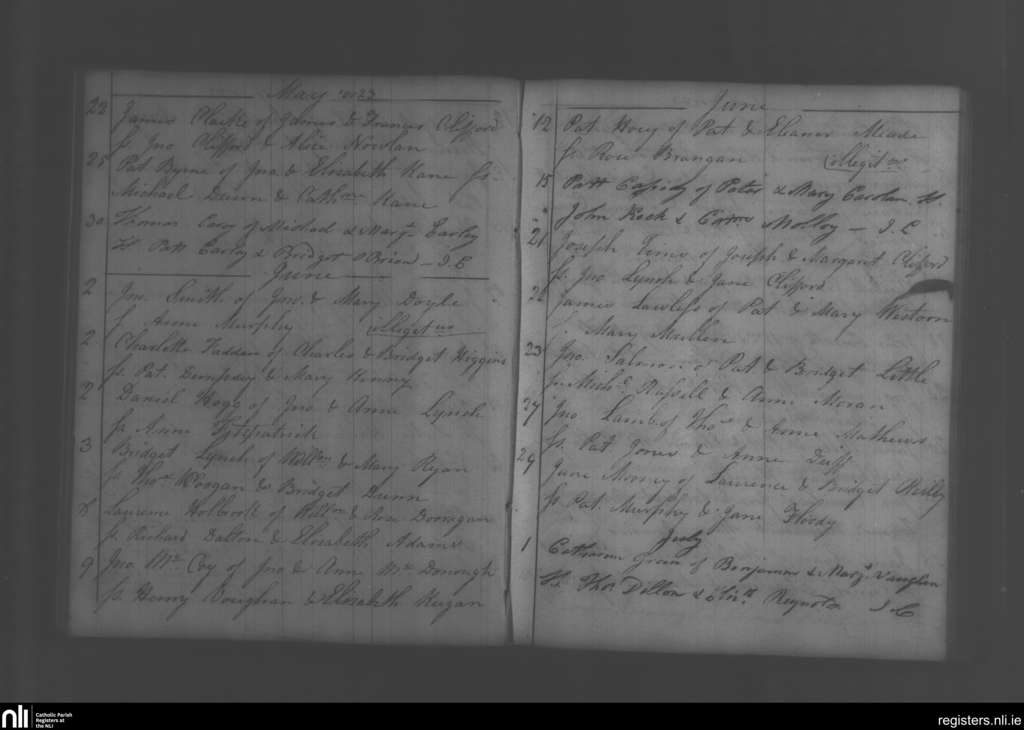 May 1832
22 James Clarke of James & Frances Clifford
sp. Jno Clifford & Alice Nowlan
25 Pat Byrne of Jno & Elizabeth Kane sp.
Michael Dunn & Cathne Kane
30 Thomas Casey of Michael & Margt Earley
Sp Patt Earley & Bridget OBrien — J. C
June
2 Jno. Smith of Jno. & Mary Doyle
s. Anne Murphy illegit us
2 Charlotte Fadden of Charles & Bridget Higgins
sp. Pat. Dempsey & Mary Kenny
2 Daniel Hogg of Jno. & Anne Lynch
sp Anne Fitzpatrick
3 Bridget Lynch of Willm & Mary Ryan
sp Thos Keogan & Bridget Dunn
8 Laurence Holbrook of Willm & Ann Doonigan
sp. Richard Dalton & Elizabeth Adams
9 Jno Mc Coy of Jno & Ann Mc Donough
sp Henry Vaughan & Elizabeth Keegan
June
12 Pat Hoey of Pat & Eleanor Meade
sp Rose Brangan illegit us
15 Patt Cassidy of Peter & Mary Carolan
John Keck & Molloy — J. C
21 Joseph of Joseph & Margaret Clifford
sp. Jno Lynch & Jane Clifford
22 James Lawless of Pat & Mary Weston
s. Mary Mullen
23 Jno. Salmon of Pat & Bridget Little
sp Michl Russell & Anne Moran
27 Jno Lamb of Thos & Anne Mathews
sp. Pat Jones & Anne Duff
29 Jane Morney of Laurence & Bridget Reilly
sp Pat. Murphy & Jane Floody
July
1 Catharine Green of Benjamin & Margt Vaughan
Sp Thos Dillon & Reynolds J C
nli Catholic Parish
Registers at
the NLI
registers.nli.ie